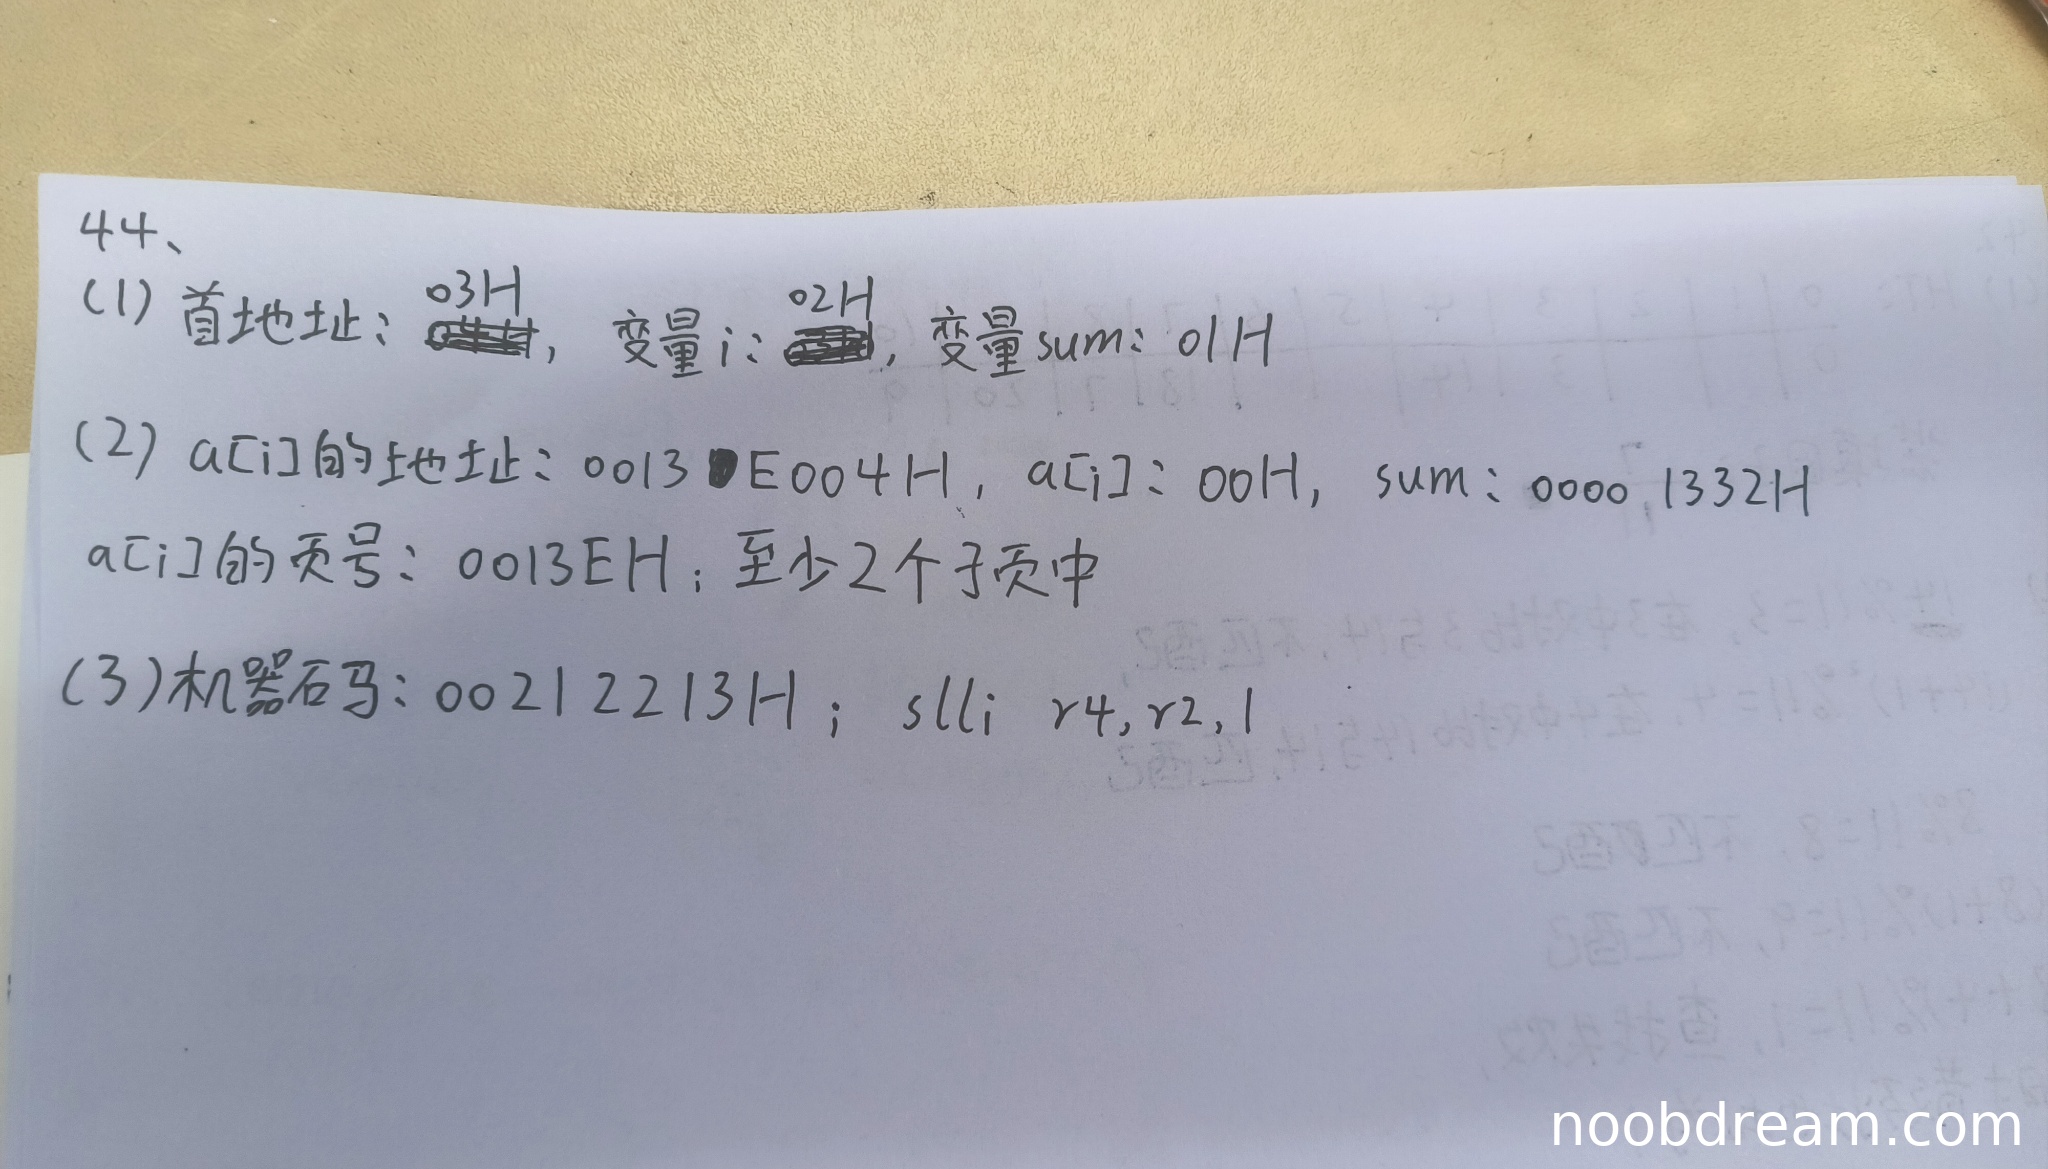 44、
(1) 首地址: 03H, 变量i: 02H, 变量sum: 01H
(2) a[i]的地址: 0013E004H, a[i]: 00H, sum: 0000 1332H
a[i]的页号: 0013EH; 至少2个于页中
(3) 机器码: 00212213H; slli r4, r2, 1
noobdream.com